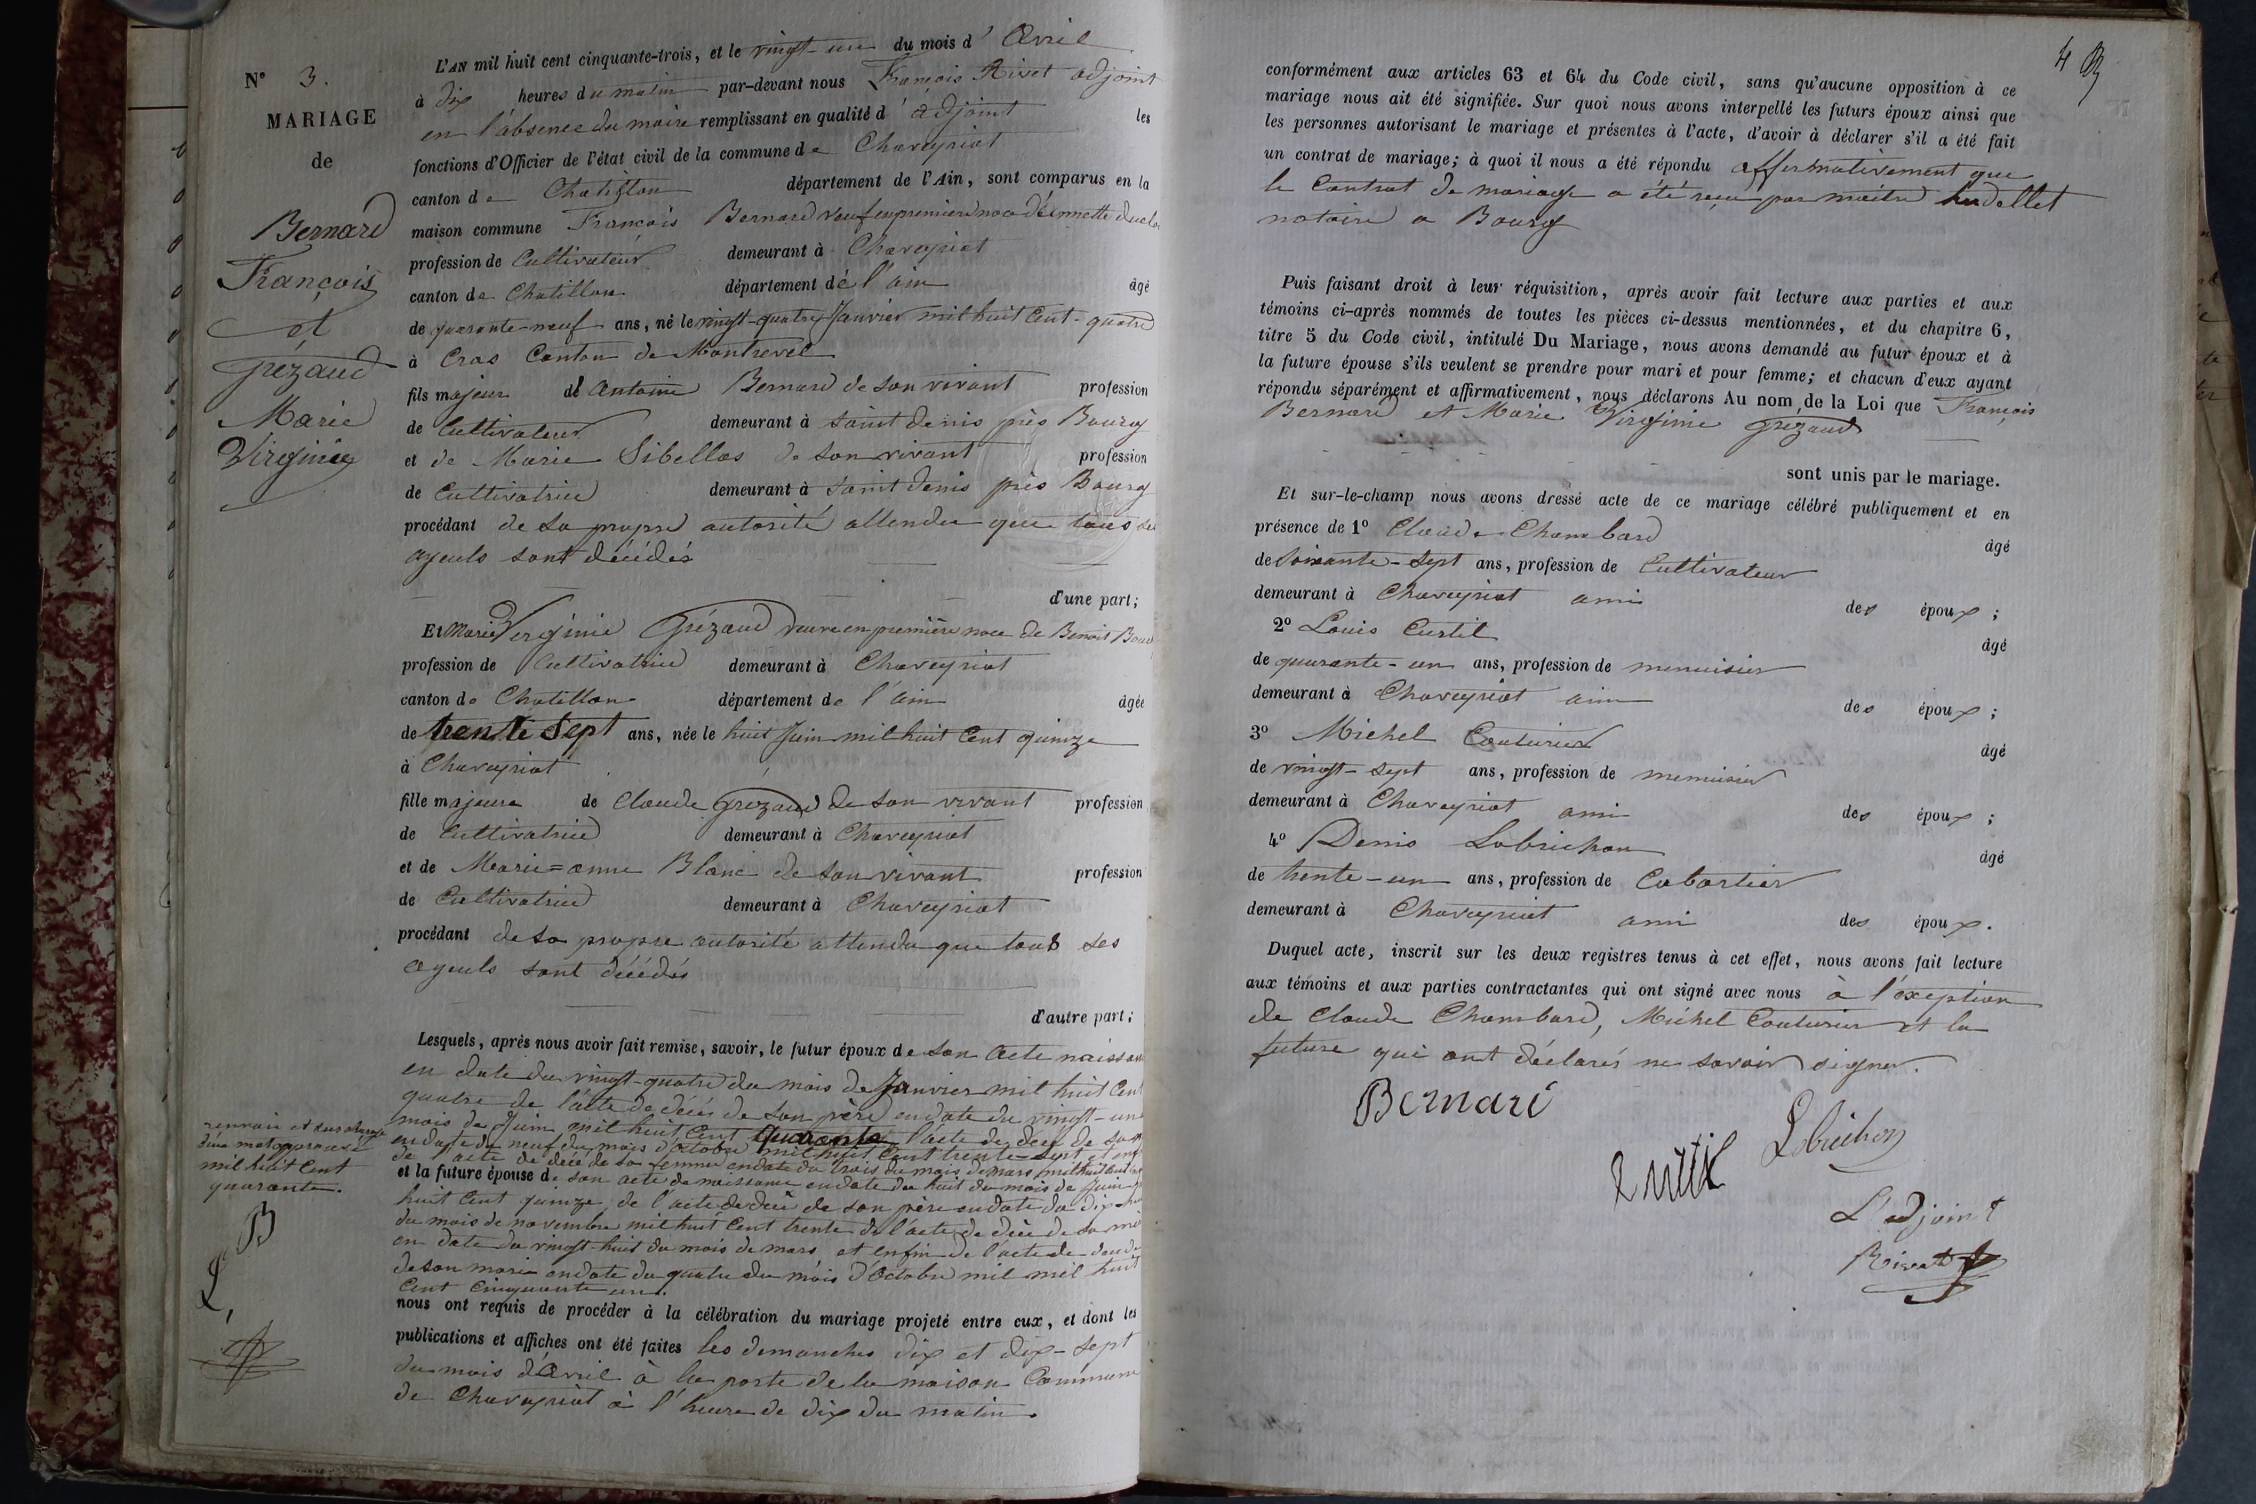 N° 3.
MARIAGE
de
Bernard
François
et
Grézaud
Marie
Virginie
L'AN mil huit cent cinquante-trois, et le vingt-un du mois d'Avril
à dix heures du matin par-devant nous François Rivet adjoint
en l'absence du maire remplissant en qualité d'adjoint les
fonctions d'Officier de l'état civil de la commune de Chaveyriat
canton de Chatillon département de l'Ain, sont comparus en la
maison commune François Bernard veuf en premiere noce
profession de Cultivateur demeurant à Chaveyriat
canton de Chatillon département de l'ain âgé
de quarante-neuf ans, né le vingt-quatre Janvier mil huit Cent-quatre
à Cras Canton de Montrevel
fils majeur de Antoine Bernard de son vivant profession
de Cultivateur demeurant à saint denis près Bourg
et de Marie Sibellas de son vivant profession
de Cultivatrice demeurant à saint denis près Bourg
procédant de sa propre autorité attendu que tous ses
ayeuls sont décédés
d'une part;
Et Marie Verginie Grézaud veuve en première noce de Benoit
profession de Cultivatrice demeurant à Chaveyriat
canton de Chatillon département de l'ain âgée
de trente sept ans, née le huit Juin mil huit Cent quinze
à Chaveyriat
fille majeure de Claude Grézaud de son vivant profession
de Cultivatrice demeurant à Chaveyriat
et de Marie=anne Blanc de son vivant profession
de Cultivatrice demeurant à Chaveyriat
procédant de sa propre autorité attendu que tous ses
ayeuls sont décédés
d'autre part;
Lesquels, après nous avoir fait remise, savoir, le futur époux de son acte naissance
en date du vingt-quatre du mois de Janvier mil huit Cent
quatre de l'acte de décés de son père en date du vingt-un
mois de Juin mil huit Cent quarante l'acte de décé de sa
en date du neuf du mois d'octobre mil huit Cent trente-sept et enfin
de l'acte de décé de sa femme en date du trois du mois de mars mil huit Cent
et la future épouse de son acte de naissance en date du huit du mois de Juin
huit Cent quinze, de l'acte de décé de son père en date du dix
du mois de novembre mil huit Cent trente de l'acte de décé de sa
en date du vingt-huit du mois de mars et enfin de l'acte de
de son marie en date du quatre du mois d'Octobre mil mil huit
Cent Cinquante un.
nous ont requis de procéder à la célébration du mariage projeté entre eux, et dont les
publications et affiches ont été faites les dimanches dix et dix-sept
du mois d'Avril à la porte de la maison Commune
de Chaveyriat à l'heure de dix du matin.
renvoi et surcharge
d'un mot approuvé
mil huit Cent
quarante.
B
L,
4 B
conformément aux articles 63 et 64 du Code civil, sans qu'aucune opposition à ce
mariage nous ait été signifiée. Sur quoi nous avons interpellé les futurs époux ainsi que
les personnes autorisant le mariage et présentes à l'acte, d'avoir à déclarer s'il a été fait
un contrat de mariage; à quoi il nous a été répondu affirmativement que
le Contrat de mariage a été reçu par maitre hudellet
notaire a Bourg
Puis faisant droit à leur réquisition, après avoir fait lecture aux parties et aux
témoins ci-après nommés de toutes les pièces ci-dessus mentionnées, et du chapitre 6,
titre 5 du Code civil, intitulé Du Mariage, nous avons demandé au futur époux et à
la future épouse s'ils veulent se prendre pour mari et pour femme; et chacun d'eux ayant
répondu séparément et affirmativement, nous déclarons Au nom de la Loi que François
Bernard et Marie Virginie Grézaud
sont unis par le mariage.
Et sur-le-champ nous avons dressé acte de ce mariage célébré publiquement et en
présence de 1° Claude Chambard âgé
de soixante-sept ans, profession de Cultivateur
demeurant à Chaveyriat ami des époux;
2° Louis Curtil âgé
de quarante-un ans, profession de menuisier
demeurant à Chaveyriat ami des époux;
3° Michel Couturier âgé
de vingt-sept ans, profession de menuisier
demeurant à Chaveyriat ami des époux;
4° Denis Lobrichon âgé
de trente-un ans, profession de Cabartier
demeurant à Chaveyriat ami des époux.
Duquel acte, inscrit sur les deux registres tenus à cet effet, nous avons fait lecture
aux témoins et aux parties contractantes qui ont signé avec nous à l'éxeption
de Claude Chambard, Michel Couturier et la
future qui ont déclarés ne savoir signer.
Bernard
Lobrichon
L'adjoint
Rivet